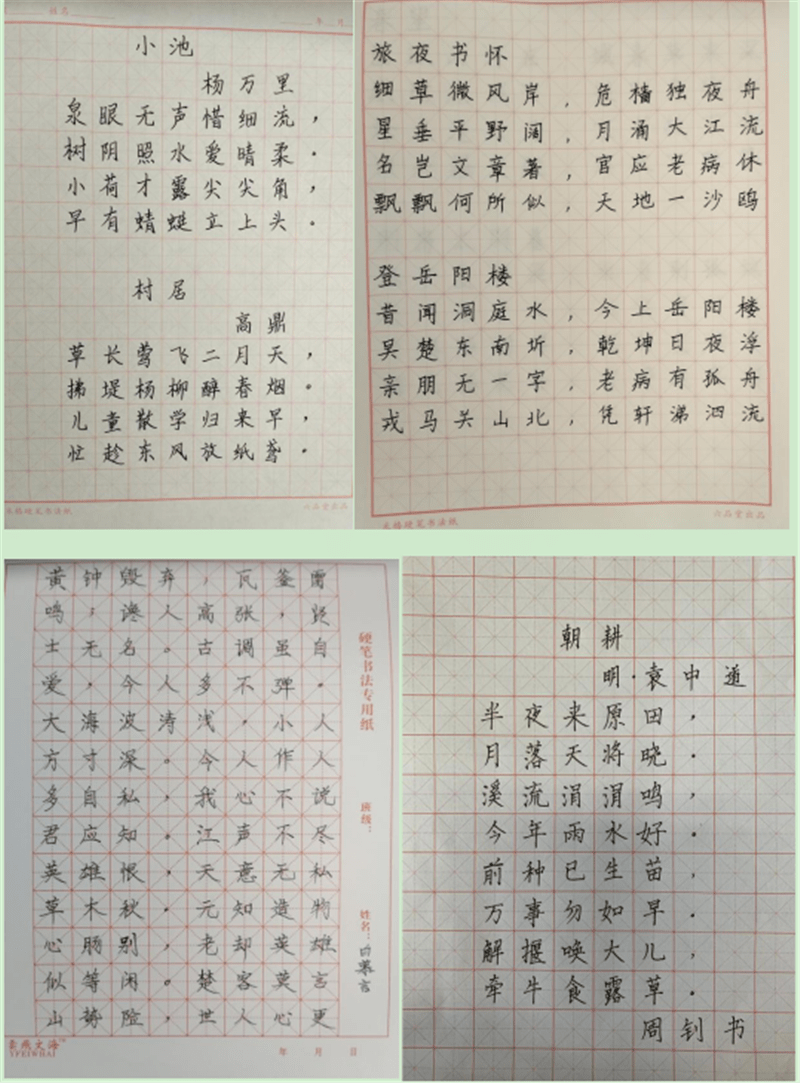 姓名
年 月
小池
杨万里
泉眼无声惜细流，
树阴照水爱晴柔．
小荷才露尖尖角，
早有蜻蜓立上头．
村居
高鼎
草长莺飞二月天，
拂堤杨柳醉春烟。
儿童散学归来早，
忙趁东风放纸鸢．
米格硬笔书法纸
六品堂出品
旅夜书怀
细草微风岸，危樯独夜舟
星垂平野阔，月涌大江流
名岂文章著，官应老病休
飘飘何所似，天地一沙鸥
登岳阳楼
昔闻洞庭水，今上岳阳楼
吴楚东南坼，乾坤日夜浮
亲朋无一字，老病有孤舟
戎马关山北，凭轩涕泗流
米格硬笔书法纸
六品堂出品
黄钟毁弃，瓦釜雷
鸣；谗人高张，贤
士无名。古调虽自
爱，今人多不弹．
大海波涛浅，小人
方寸深。今人作人
多自私，我心不说
君应知。江声不尽
英雄恨，天意无私
草木秋．元知造物
心肠别，老却英雄
似等闲。楚客莫言
山势险，世人心更
硬笔书法专用纸
班级：
姓名：
年 月 日
YIFEIWHAI
朝耕
明·袁中道
半夜来原田，
月落天将晓．
溪流涓涓鸣，
今年雨水好．
前种已生苗，
万事勿如早．
解握唤大儿，
牵牛食露草．
周钊书